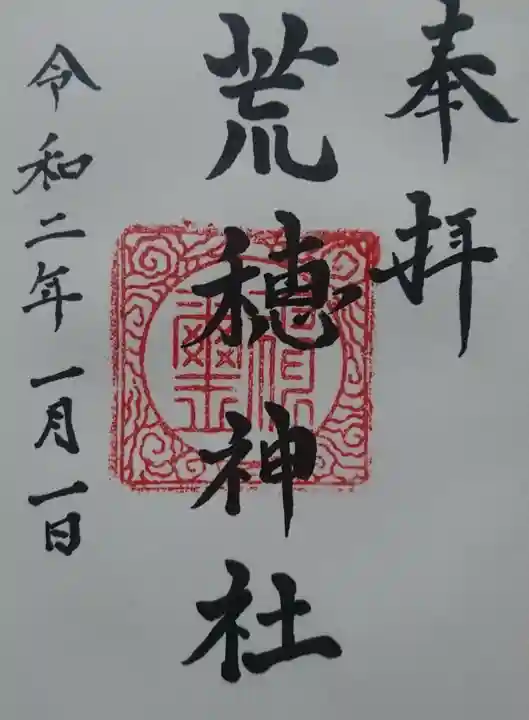 奉拝
荒穂神社
令和二年一月一日